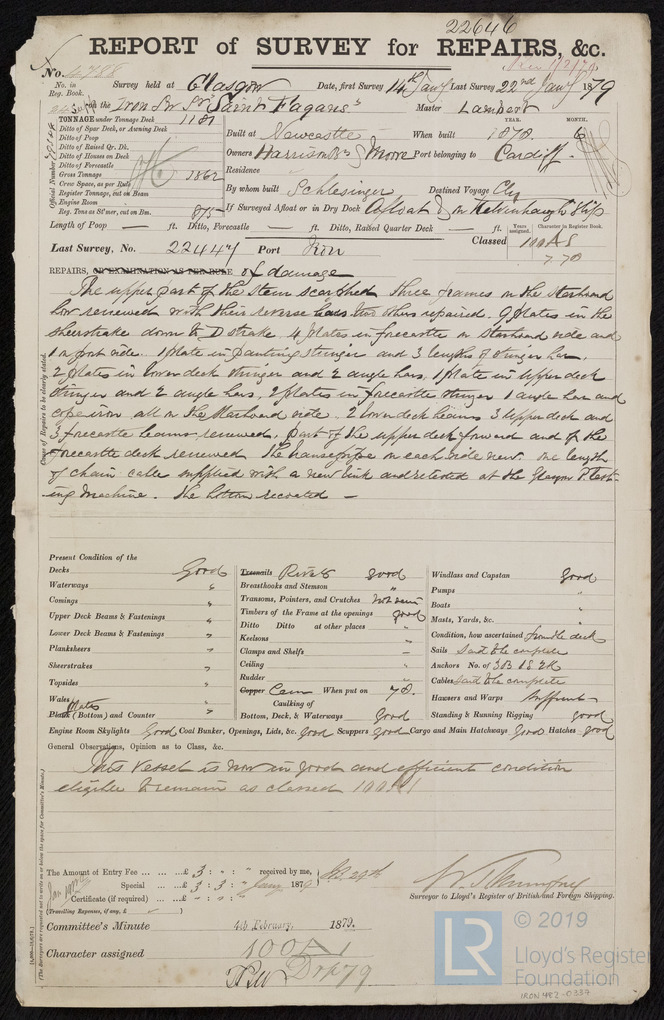 22646
REPORT of SURVEY for REPAIRS, &c.
No. 2788
No. in Reg. Book. Survey held at Glasgow Date, first Survey 14th Jany Last Survey 22nd Jany 1879
on the Iron Sw Sr "Saint Fagans" Master Lambert
TONNAGE under Tonnage Deck 1181
Ditto of Spar Deck, or Awning Deck
Ditto of Poop
Ditto of Raised Qr. Dk.
Ditto of Houses on Deck
Ditto of Forecastle
Gross Tonnage 1862
Crew Space, as per Rule
Register Tonnage, cut on Beam
Engine Room
Reg. Tons as St'mer, cut on Bm. 875
Official Number
YEAR. MONTH.
Built at Newcastle When built 1878. 6
Owners Harrison & Moore Port belonging to Cardiff
Residence
By whom built Schlesinger Destined Voyage Cly
If Surveyed Afloat or in Dry Dock Afloat & on Kelvinhaugh Slip
Length of Poop — ft. Ditto, Forecastle — ft. Ditto, Raised Quarter Deck — ft.
Years assigned. Character in Register Book.
Last Survey, No. 22447 Port Iron Classed 100A1
7.78
REPAIRS, OR EXAMINATION AS PER RULE of damage
Cause of Repairs to be clearly stated.
The upper part of the stem scarphed three frames on the starboard
bow renewed with their reverse bars two others repaired. 9 plates in the
sheerstrake down to D strake. 4 plates in forecastle on Starboard side and
1 on port side. 1 plate in panting stringer and 3 lengths of stringer bar,
2 plates in lower deck stringer and 2 angle bars, 1 plate in upper deck
stringer and 2 angle bars, 2 plates in forecastle stringer 1 angle bar and
cope iron all on the starboard side. 2 lower deck beams 3 upper deck and
3 forecastle beams renewed, part of the upper deck forward and of the
forecastle deck renewed the hawsepipe on each side new. one length
of chain cable supplied with a new link and retested at the Glasgow P. Test-
ing machine. The bottom recoated —
Present Condition of the
Decks Good
Waterways "
Comings "
Upper Deck Beams & Fastenings "
Lower Deck Beams & Fastenings "
Planksheers "
Sheerstrakes "
Topsides "
Wales "
Plates
Plank (Bottom) and Counter "
Treenails Rivets good
Breasthooks and Stemson "
Transoms, Pointers, and Crutches not seen
Timbers of the Frame at the openings good
Ditto Ditto at other places "
Keelsons "
Clamps and Shelfs —
Ceiling "
Rudder "
Copper Cem When put on 78.
Caulking of
Bottom, Deck, & Waterways Good
Windlass and Capstan Good
Pumps "
Boats "
Masts, Yards, &c. "
Condition, how ascertained from the deck
Sails Said to be complete
Anchors No. of 3B 1S 2K
Cables Said to be complete
Hawsers and Warps Sufficient
Standing & Running Rigging good
Engine Room Skylights Good Coal Bunker, Openings, Lids, &c. Good Scuppers Good Cargo and Main Hatchways Good Hatches good
General Observations, Opinion as to Class, &c.
This vessel is now in good and efficient condition
eligible to remain as classed 100A1
The Amount of Entry Fee ... ... ... £ 3 : - : - received by me,
Special ... ... £ 3 : 3 : - Jany 1879
Certificate (if required) ... £ - : - : -
(Travelling Expenses, if any, £ )
Surveyor to Lloyd's Register of British and Foreign Shipping.
Committee's Minute 4th February, 1879.
Character assigned 100A1
(The Surveyors are requested not to write on or below the space for Committee's Minute.)
© 2019
LR Lloyd's Register Foundation
IRON 483-0337